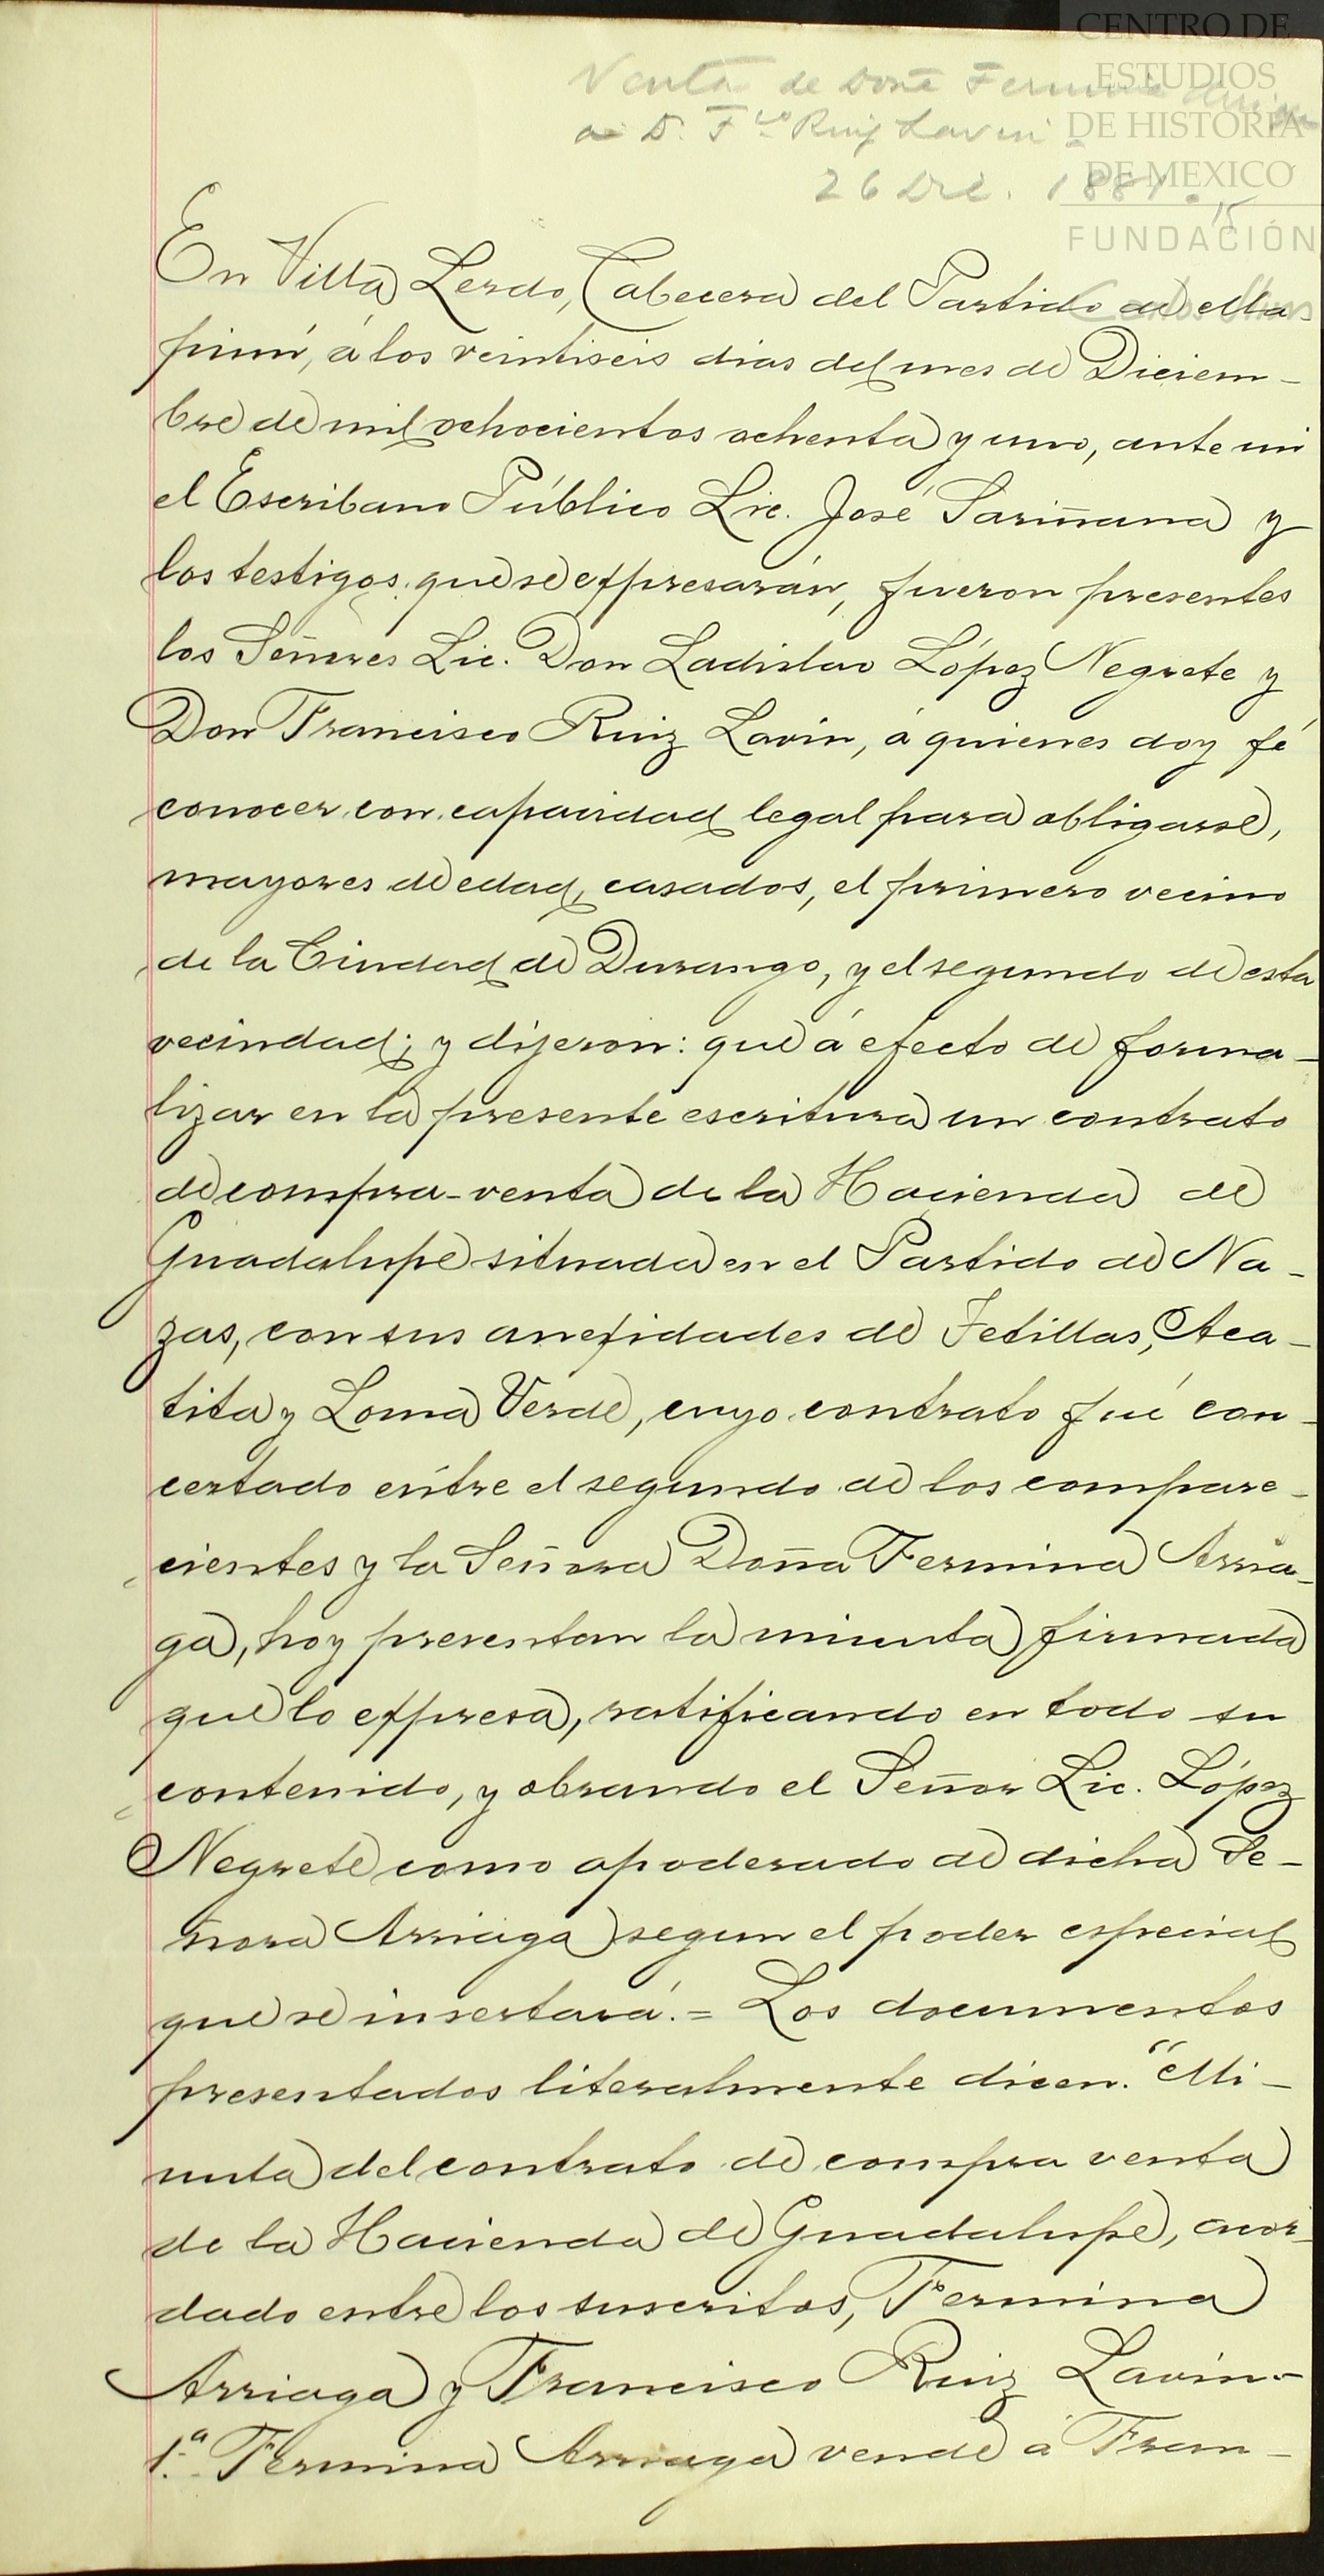 CENTRO DE
ESTUDIOS
DE HISTORIA
DE MEXICO
FUNDACIÓN
Venta de Doña Fermina
a D. Fco Ruiz Lavin
26 Dic. 1881.
15
En Villa Lerdo, Cabecera del Partido de Ma-
pimí, á los veintiseis dias del mes de Diciem-
bre de mil ochocientos ochenta y uno, ante mi
el Escribano Público Lic. José Sariñana y
los testigos que se expresarán, fueron presentes
los Señores Lic. Don Ladislao López Negrete y
Don Francisco Ruiz Lavin, á quienes doy fé
conocer con capacidad legal para obligarse,
mayores de edad, casados, el primero vecino
de la Ciudad de Durango, y el segundo de esta
vecindad; y dijeron: que á efecto de forma-
lizar en la presente escritura un contrato
de compra-venta de la Hacienda de
Guadalupe situada en el Partido de Na-
zas, con sus anexidades de Tetillas, Aca-
tita y Loma Verde, cuyo contrato fué con-
certado entre el segundo de los compare-
cientes y la Señora Doña Fermina Arria-
ga, hoy presentan la minuta firmada
que lo expresa, ratificando en todo su
contenido, y obrando el Señor Lic. López
Negrete como apoderado de dicha Se-
ñora Arriaga segun el poder especial
que se insertará.= Los documentos
presentados literalmente dicen. "Mi-
nuta del contrato de compra venta
de la Hacienda de Guadalupe, acor-
dado entre los suscritos, Fermina
Arriaga y Francisco Ruiz Lavin.-
1.ª Fermina Arriaga vende á Fran-